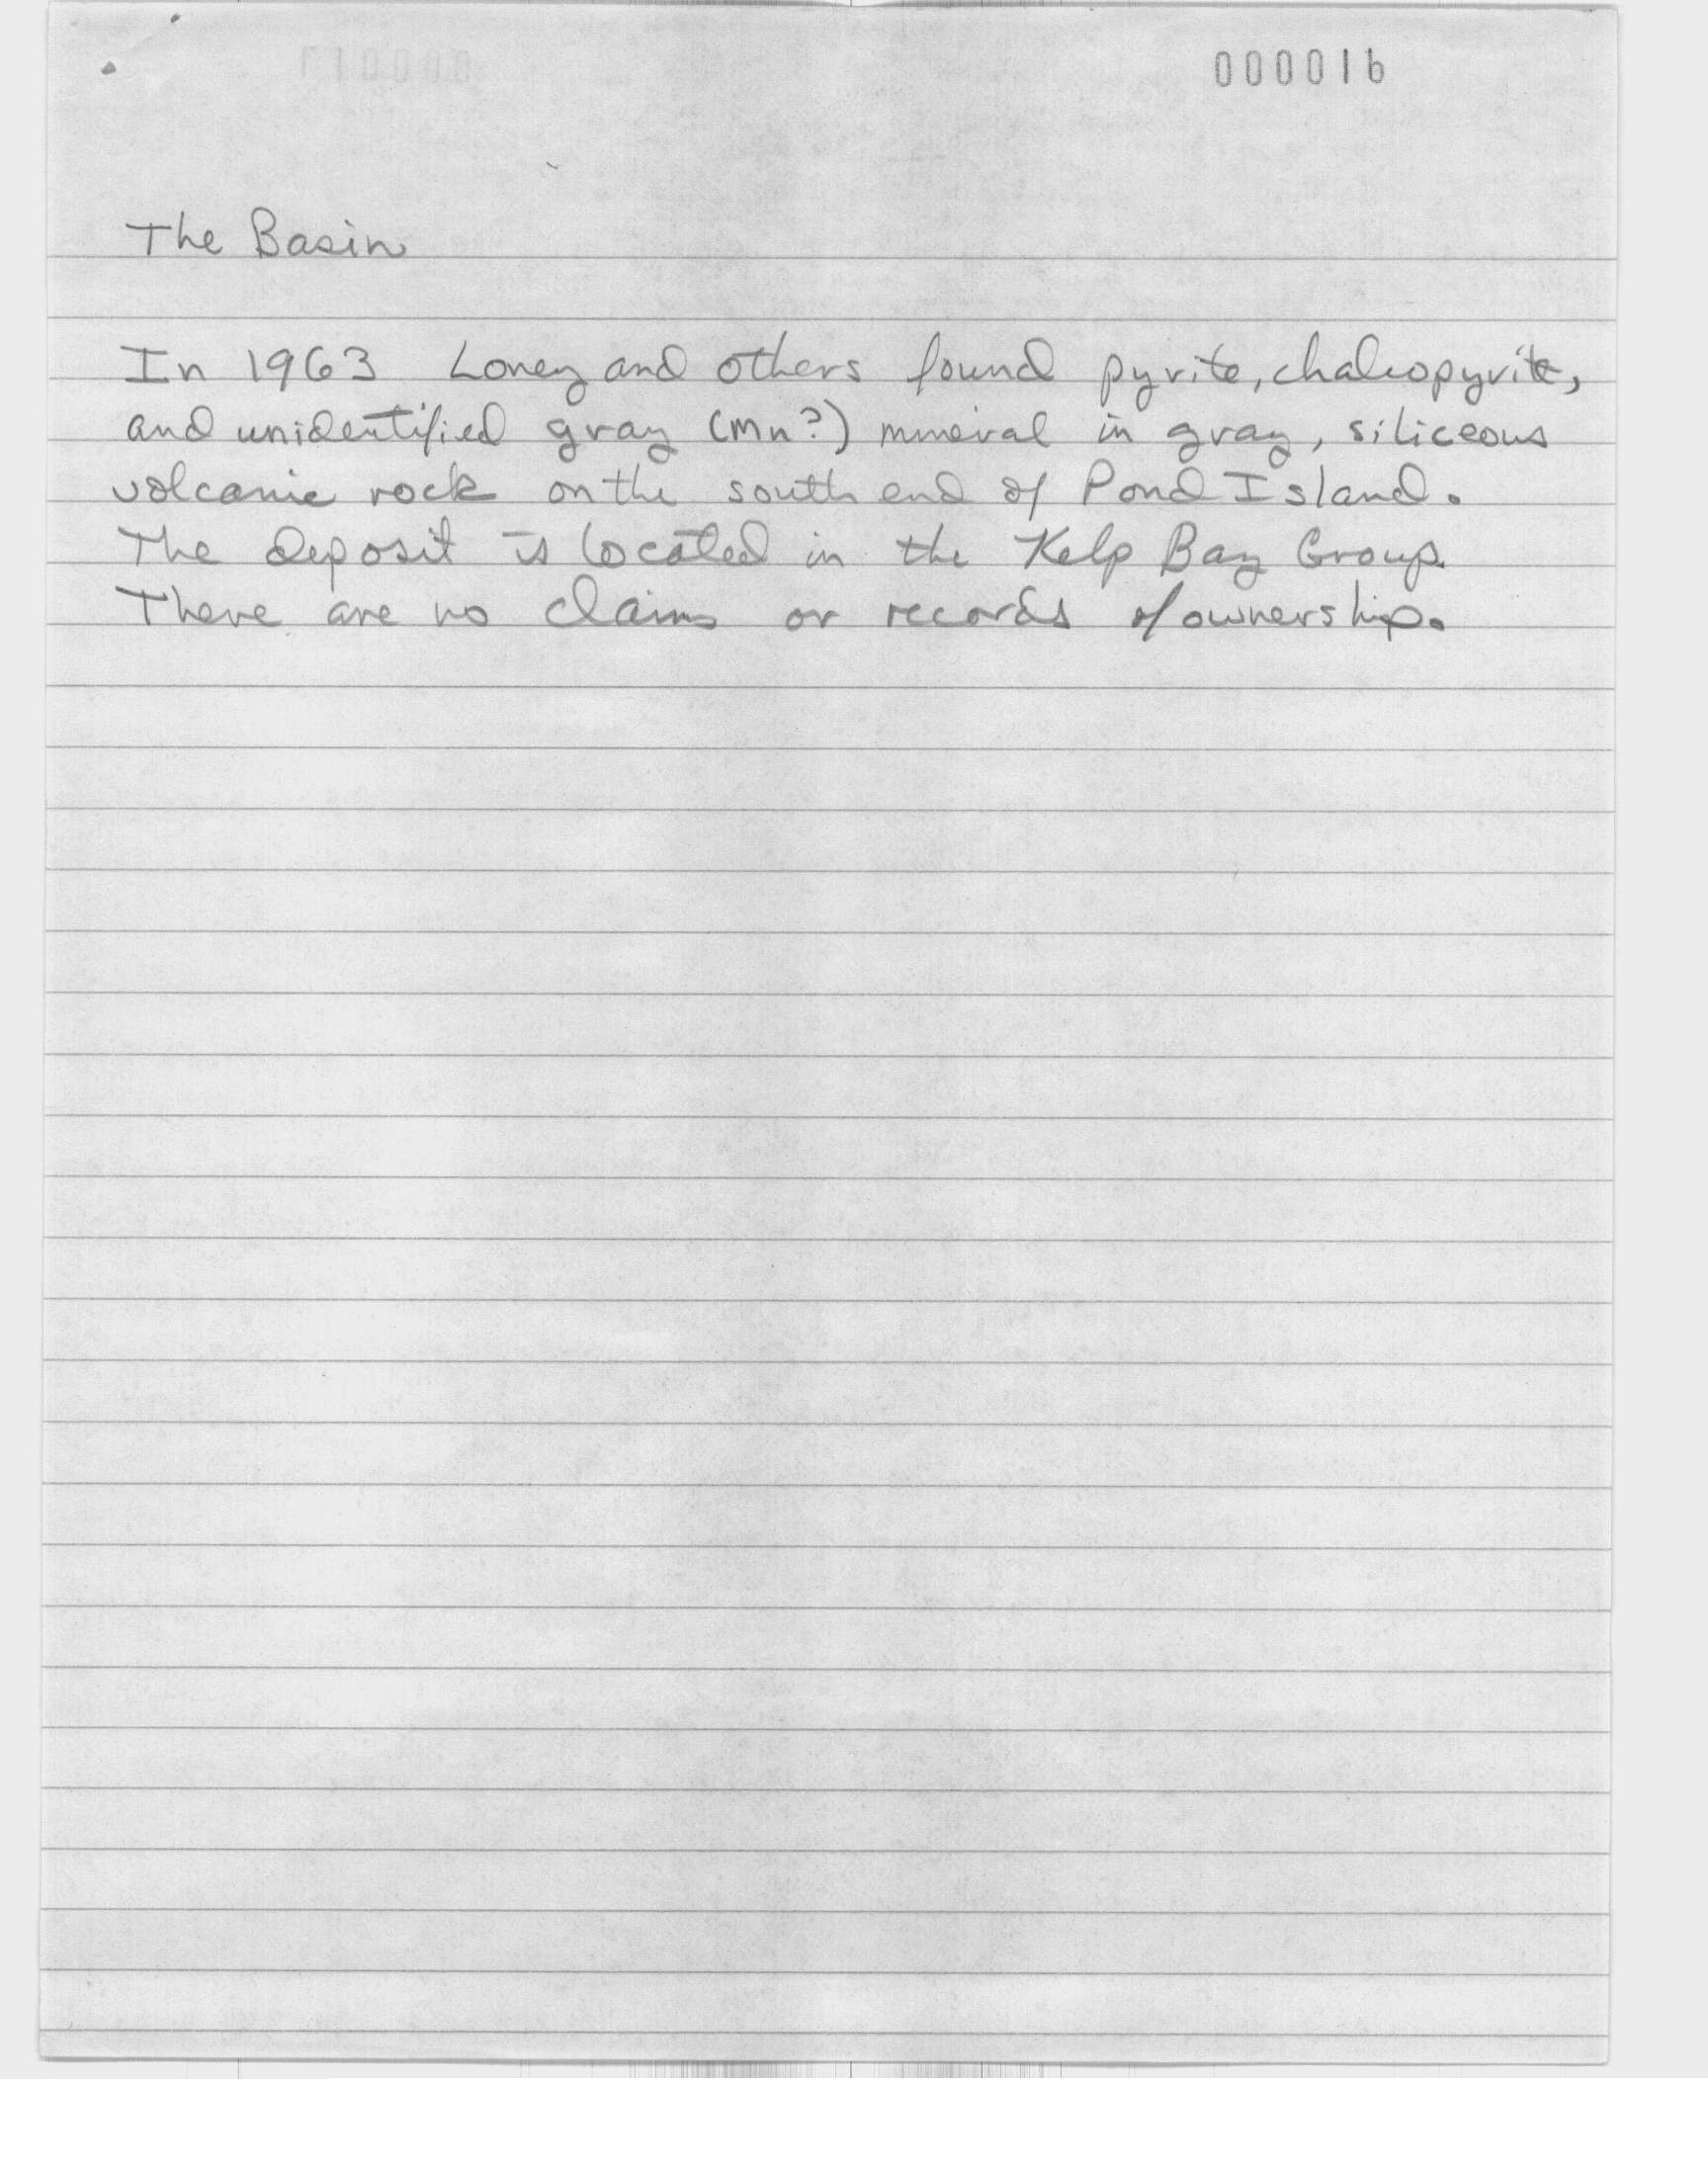 000016
The Basin
In 1963 Loney and others found pyrite, chalcopyrite,
and unidentified gray (Mn?) mineral in gray, siliceous
volcanic rock on the south end of Pond Island.
The deposit is located in the Kelp Bay Group.
There are no claims or records of ownership.